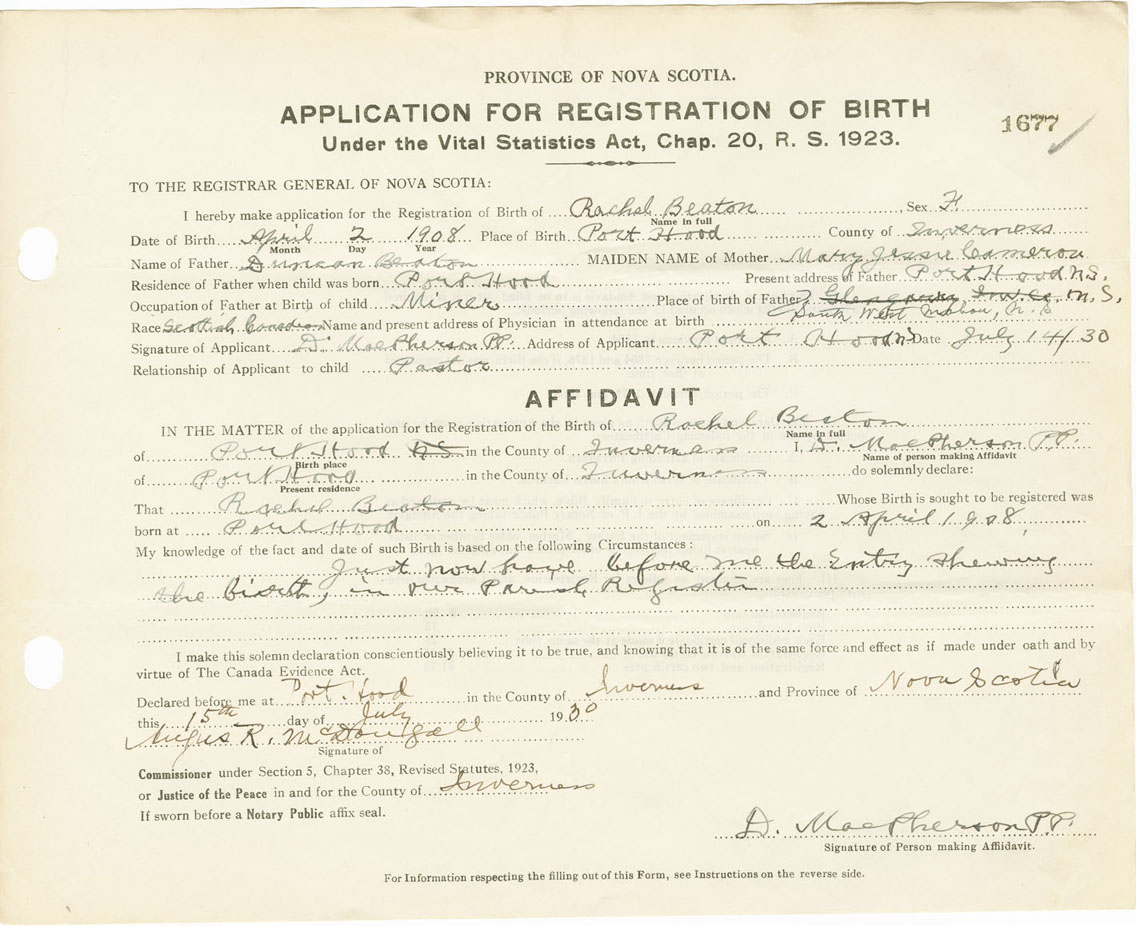 PROVINCE OF NOVA SCOTIA.
APPLICATION FOR REGISTRATION OF BIRTH
1677
Under the Vital Statistics Act, Chap. 20, R. S. 1923.
TO THE REGISTRAR GENERAL OF NOVA SCOTIA:
I hereby make application for the Registration of Birth of Rachel Beaton Sex F.
Name in full
Date of Birth April 2 1908 Place of Birth Port Hood County of Inverness
Month Day Year
Name of Father Duncan Beaton MAIDEN NAME of Mother Mary Jessie Cameron
Residence of Father when child was born Port Hood Present address of Father Port Hood N.S.
Occupation of Father at Birth of child Miner Place of birth of Father Glengarry Inv. Co. N. S.
South West Mabou, N. S
Race Scottish Canadian Name and present address of Physician in attendance at birth
Signature of Applicant D. MacPherson P.P. Address of Applicant Port Hood Date July 14/30
Relationship of Applicant to child Pastor
AFFIDAVIT
IN THE MATTER of the application for the Registration of the Birth of Rachel Beaton
Name in full
of Port Hood N.S. in the County of Inverness I, D. MacPherson P.P.
Birth place Name of person making Affidavit
of Port Hood in the County of Inverness do solemnly declare:
Present residence
That Rachel Beaton Whose Birth is sought to be registered was
born at Port Hood on 2 April 1908
My knowledge of the fact and date of such Birth is based on the following Circumstances:
Just now have before me the Entry shewing
the birth, in our Parish Register
I make this solemn declaration conscientiously believing it to be true, and knowing that it is of the same force and effect as if made under oath and by
virtue of The Canada Evidence Act.
Declared before me at Port Hood in the County of Inverness and Province of Nova Scotia
this 15th day of July 1930
Angus R. McDougall
Signature of
Commissioner under Section 5, Chapter 38, Revised Statutes, 1923,
or Justice of the Peace in and for the County of Inverness
If sworn before a Notary Public affix seal.
D. MacPherson P.P.
Signature of Person making Affidavit.
For Information respecting the filling out of this Form, see Instructions on the reverse side.